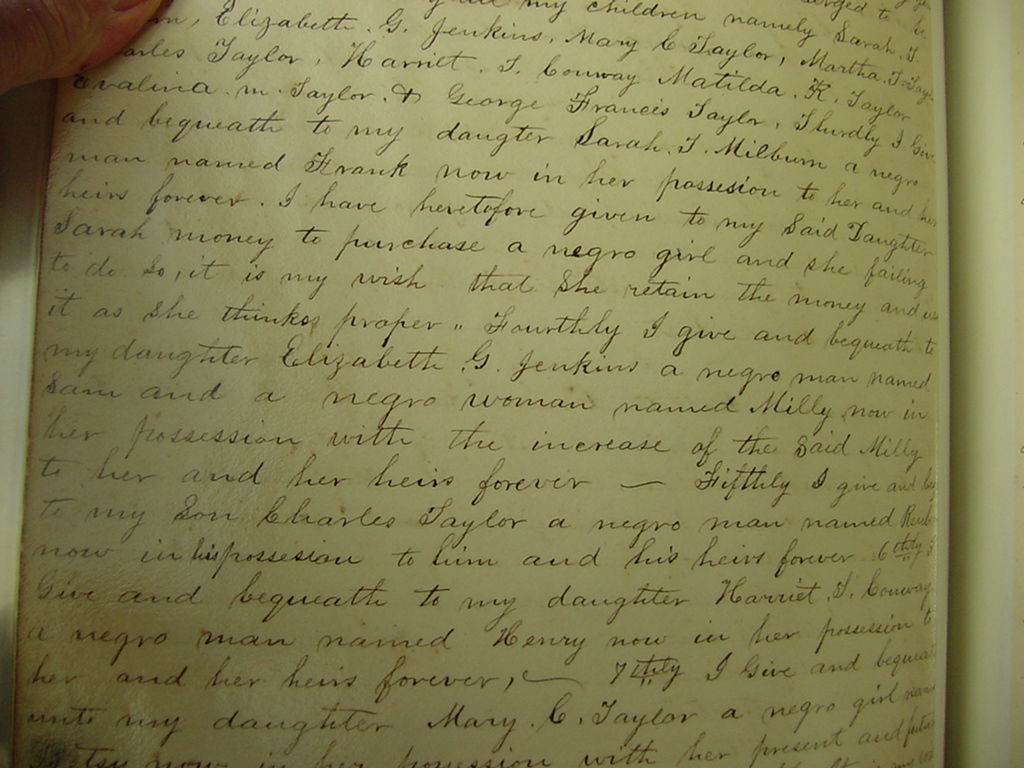 all my children namely Sarah. T.
Elizabeth. G. Jenkins, Mary C Taylor, Martha. T. Tayl
Charles Taylor, Harriet. T. Conway Matilda. K. Taylor
Evalina. m. Taylor. & George Francis Taylor, Thurdly I Giv
and bequeath to my daugter Sarah. T. Milburn a negro
man named Frank now in her possesion to her and her
heirs forever. I have heretofore given to my Said Daughter
Sarah money to purchase a negro girl and she failing
to do So, it is my wish that She retain the money and us
it as she thinks proper " Fourthly I give and bequeath to
my daughter Elizabeth. G. Jenkins a negro man named
Sam and a negro woman named Milly now in
her possession with the increase of the Said Milly
to her and her heirs forever — Fifthly I give and be
to my Son Charles Taylor a negro man named Reub
now in his possesian to him and his heirs forever 6thly I
Give and bequeath to my daughter Harriet. T. Conway
a negro man named Henry now in her possession to
her and her heirs forever, — 7thly I Give and bequea
unto my daughter Mary. C. Taylor a negro girl nam
now in her possession with her present and futur